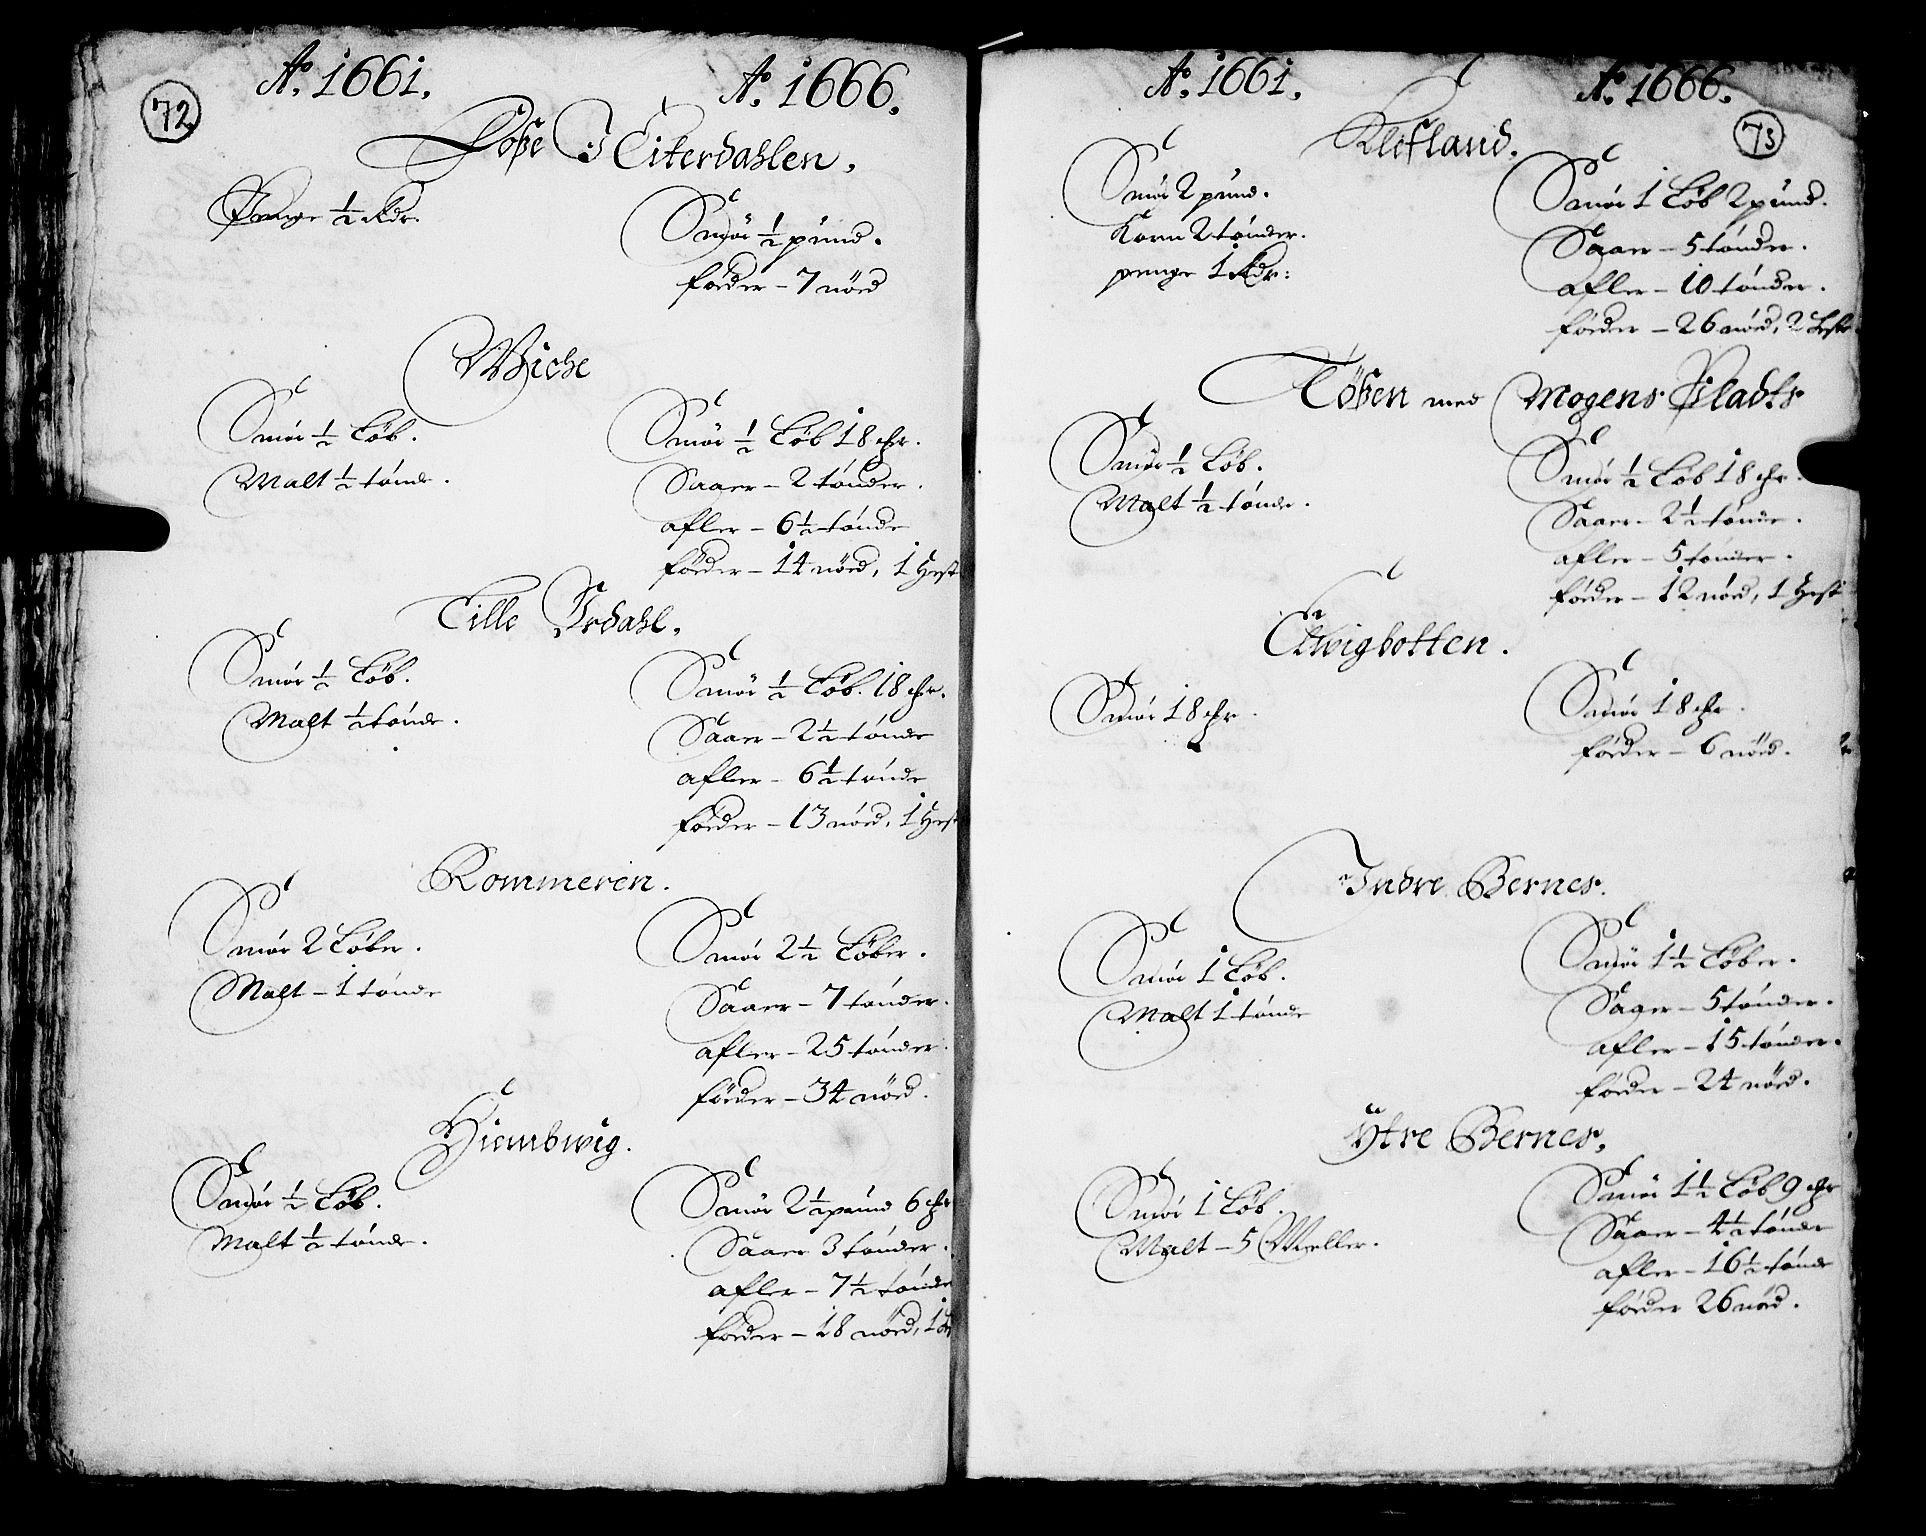 72
Ao. 1661.
Ao. 1666.
Løße I Eiterdahlen.
Penge ½ Rdr.
Smör ½ pund.
föder – 7 nöed
Wiche
Smör ½ Löb.
Malt ½ tönde.
Smör ½ Löb 18 mr.
Saaer – 2 tönder.
afler – 6½ tönde
föder – 14 nöed, 1 Hest
Lille Jrdahl.
Smör ½ Löb.
Malt ½ tönde.
Smör ½ Löb. 18 mr.
Saaer – 2½ tönde
afler – 6½ tönde
föder – 13 nöed, 1 Hest
Rommeren.
Smör 2 Löber.
Malt – 1 tönde
Smör 2½ Löber.
Saaer – 7 tönder.
afler – 25 tönder.
föder – 34 nöed.
Hiembwig.
Smör ½ Löb.
Malt ½ tönde.
Smör 2½ pund 6 mr
Saaer 3 tönder.
afler – 7½ tönde
föder – 18 nöed, 1
73
Ao. 1661.
Ao. 1666.
Klefland.
Smör 2 pund.
Korn 2 tönder.
penge 1 Rdr:
Smör 1 Löb 2 pund.
Saaer – 5 tönder.
afler – 10 tönder.
föder – 26 nöed, 2 Heste
Tößen med Mogens Pladts
Smör ½ Löb.
Malt ½ tönde.
Smör ½ Löb 18 mr.
Saaer – 2½ tönde.
afler – 5 tönder.
föder – 12 nöed, 1 Hest
Elwigbotten.
Smör 18 mr.
Smör 18 mr.
föder – 6 nöed.
Indre Bernes.
Smör 1 Löb.
Malt 1 tönde
Smör 1½ Löber.
Saaer – 5 tönder.
afler – 15 tönder.
föder – 24 nöed.
Ytre Bernes.
Smör 1 Löb.
Malt – 5 Meller.
Smör 1½ Löb 9 mr
Saaer – 4½ tönde
afler – 16½ tönde
föder 26 nöed.